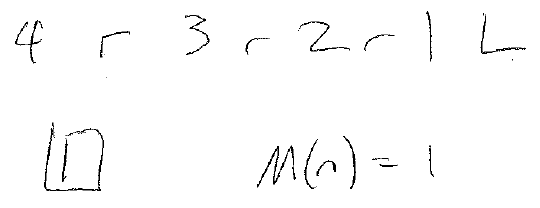 4 r 3 r 2 r 1 L
M(n) = 1